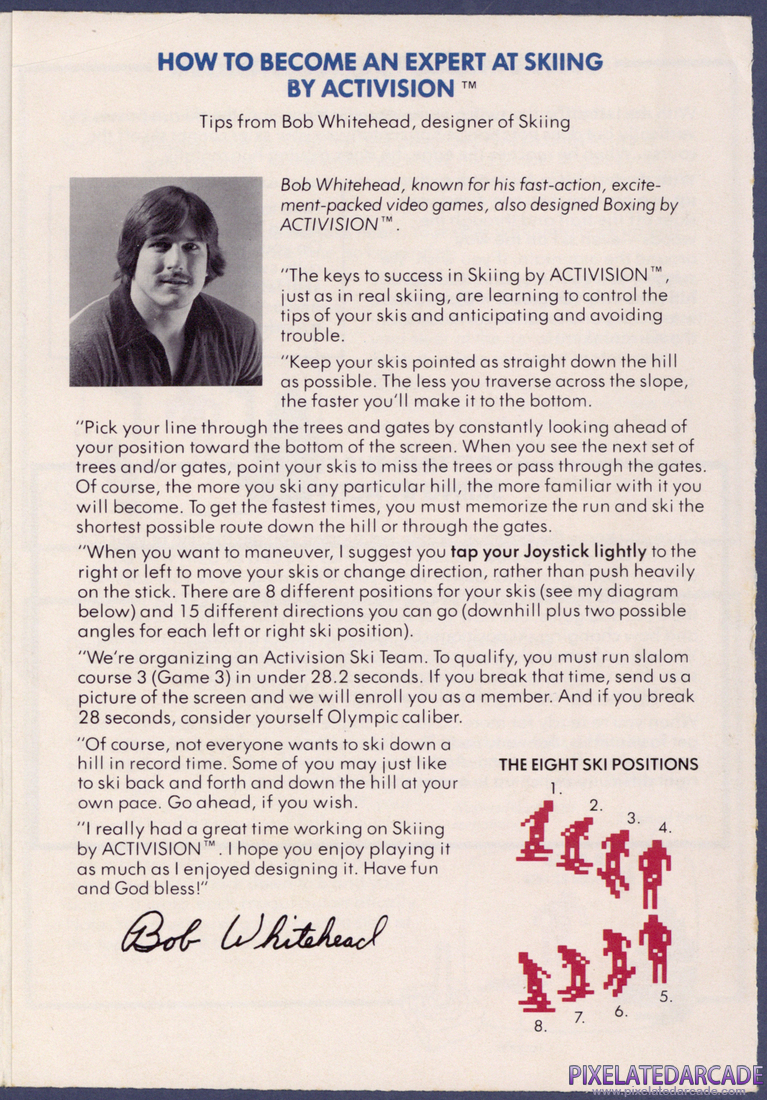 HOW TO BECOME AN EXPERT AT SKIING
BY ACTIVISION ™
Tips from Bob Whitehead, designer of Skiing
Bob Whitehead, known for his fast-action, excite-
ment-packed video games, also designed Boxing by
ACTIVISION™.
"The keys to success in Skiing by ACTIVISION™,
just as in real skiing, are learning to control the
tips of your skis and anticipating and avoiding
trouble.
"Keep your skis pointed as straight down the hill
as possible. The less you traverse across the slope,
the faster you'll make it to the bottom.
"Pick your line through the trees and gates by constantly looking ahead of
your position toward the bottom of the screen. When you see the next set of
trees and/or gates, point your skis to miss the trees or pass through the gates.
Of course, the more you ski any particular hill, the more familiar with it you
will become. To get the fastest times, you must memorize the run and ski the
shortest possible route down the hill or through the gates.
"When you want to maneuver, I suggest you tap your Joystick lightly to the
right or left to move your skis or change direction, rather than push heavily
on the stick. There are 8 different positions for your skis (see my diagram
below) and 15 different directions you can go (downhill plus two possible
angles for each left or right ski position).
"We're organizing an Activision Ski Team. To qualify, you must run slalom
course 3 (Game 3) in under 28.2 seconds. If you break that time, send us a
picture of the screen and we will enroll you as a member. And if you break
28 seconds, consider yourself Olympic caliber.
"Of course, not everyone wants to ski down a
hill in record time. Some of you may just like
to ski back and forth and down the hill at your
own pace. Go ahead, if you wish.
"I really had a great time working on Skiing
by ACTIVISION™. I hope you enjoy playing it
as much as I enjoyed designing it. Have fun
and God bless!"
Bob Whitehead
THE EIGHT SKI POSITIONS
1.
2.
3.
4.
5.
6.
7.
8.
PIXELATEDARCADE
www.pixelatedarcade.com